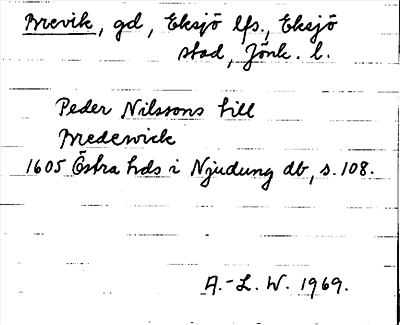 Brevik, gd, Eksjö lfs., Eksjö
stad, Jönk. l.
Peder Nilssons till
Bredewick
1605 Östra hds i Njudung db, s. 108.
A.-L. W. 1969.